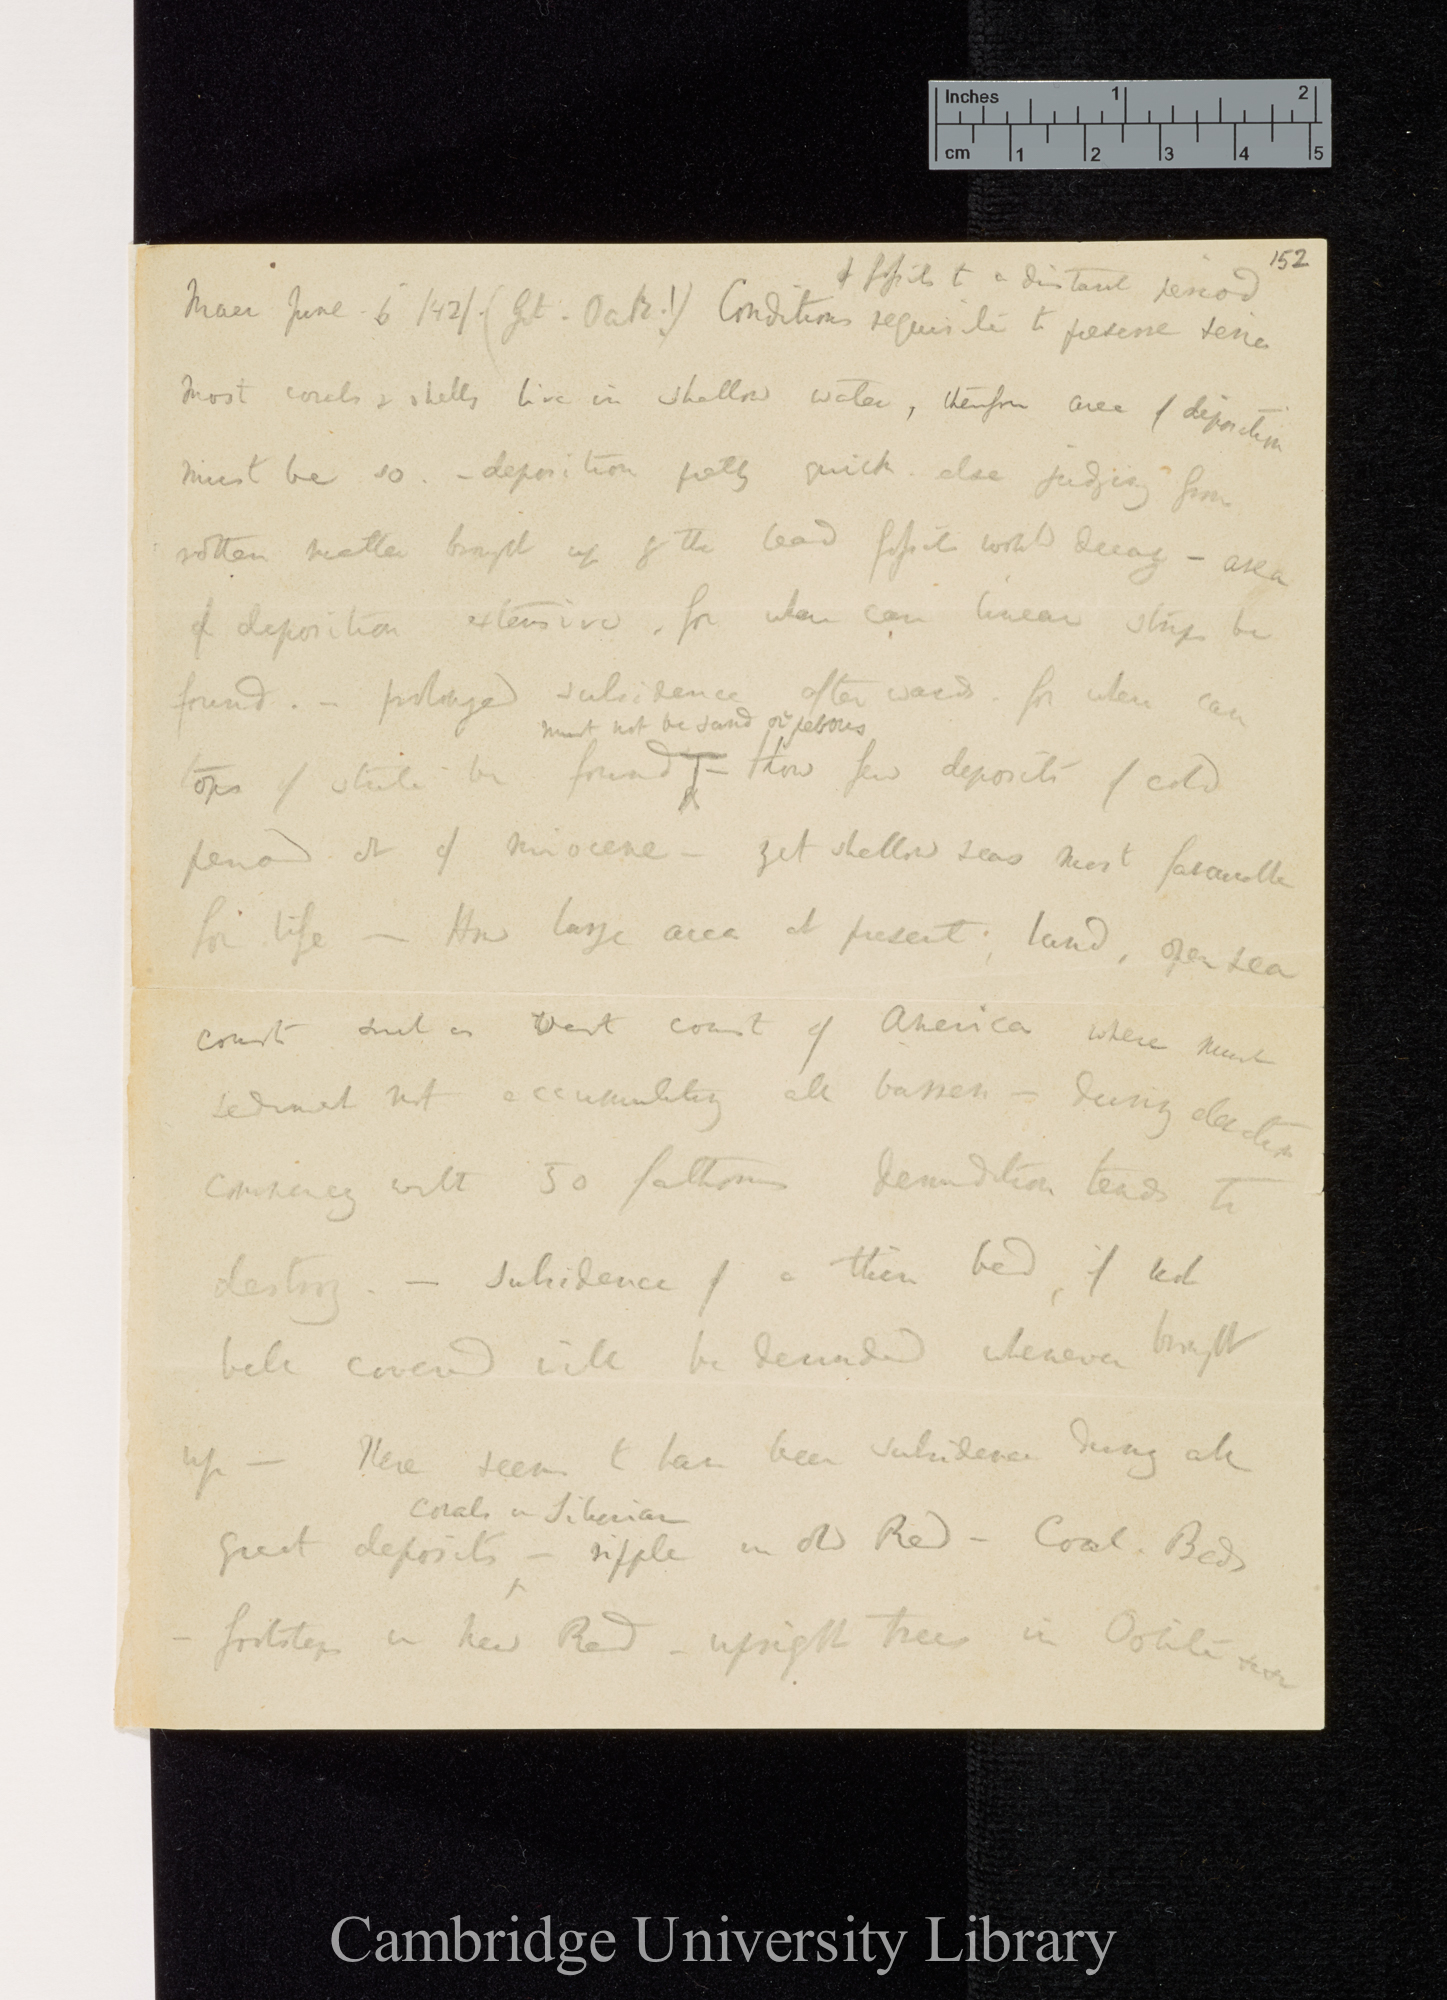 Inches 1 2
cm 1 2 3 4 5
152
of fossils to a distant period
Maer June 6 /42/. (Conditions requisite to preserve series
Most corals & shells live in shallow water, therefore area of deposition
must be so. – deposition pretty quick else judging from
rotten matter brought up by the lead fossils would decay – area
of deposition extensive, for when can linear strips be
found. – prolonged subsidence afterwards. for when can
must not be sand or porous
tops of strata be found – How few deposits of cold
period or of miocene – yet shallow seas most favourable
for life – How large area at present; land, open sea
coast such as West coast of America where must
sediment not accumulating all barren – during elevation
commencing with 50 fathoms denudation tends to
destroy. – Subsidence of a thin bed, if not
well covered will be denuded whenever brought
up – There seems to have been subsidence during all
corals in Silurian
great deposits – ripple in old Red – Coal. Beds
– footsteps in New Red – upright trees in Oolite
Cambridge University Library